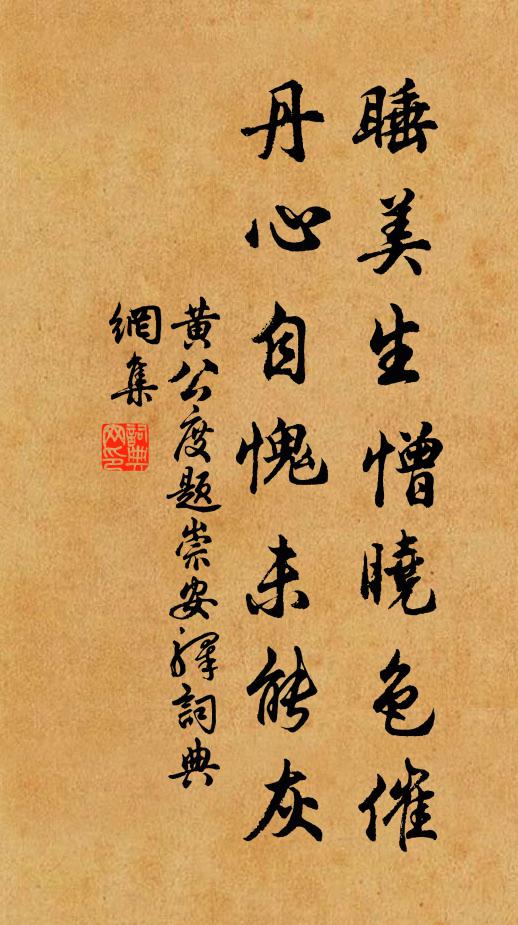 睡美生憎曉色催
丹心自愧未能灰
黃公度題崇安驛詞典
網集
詞典
网印